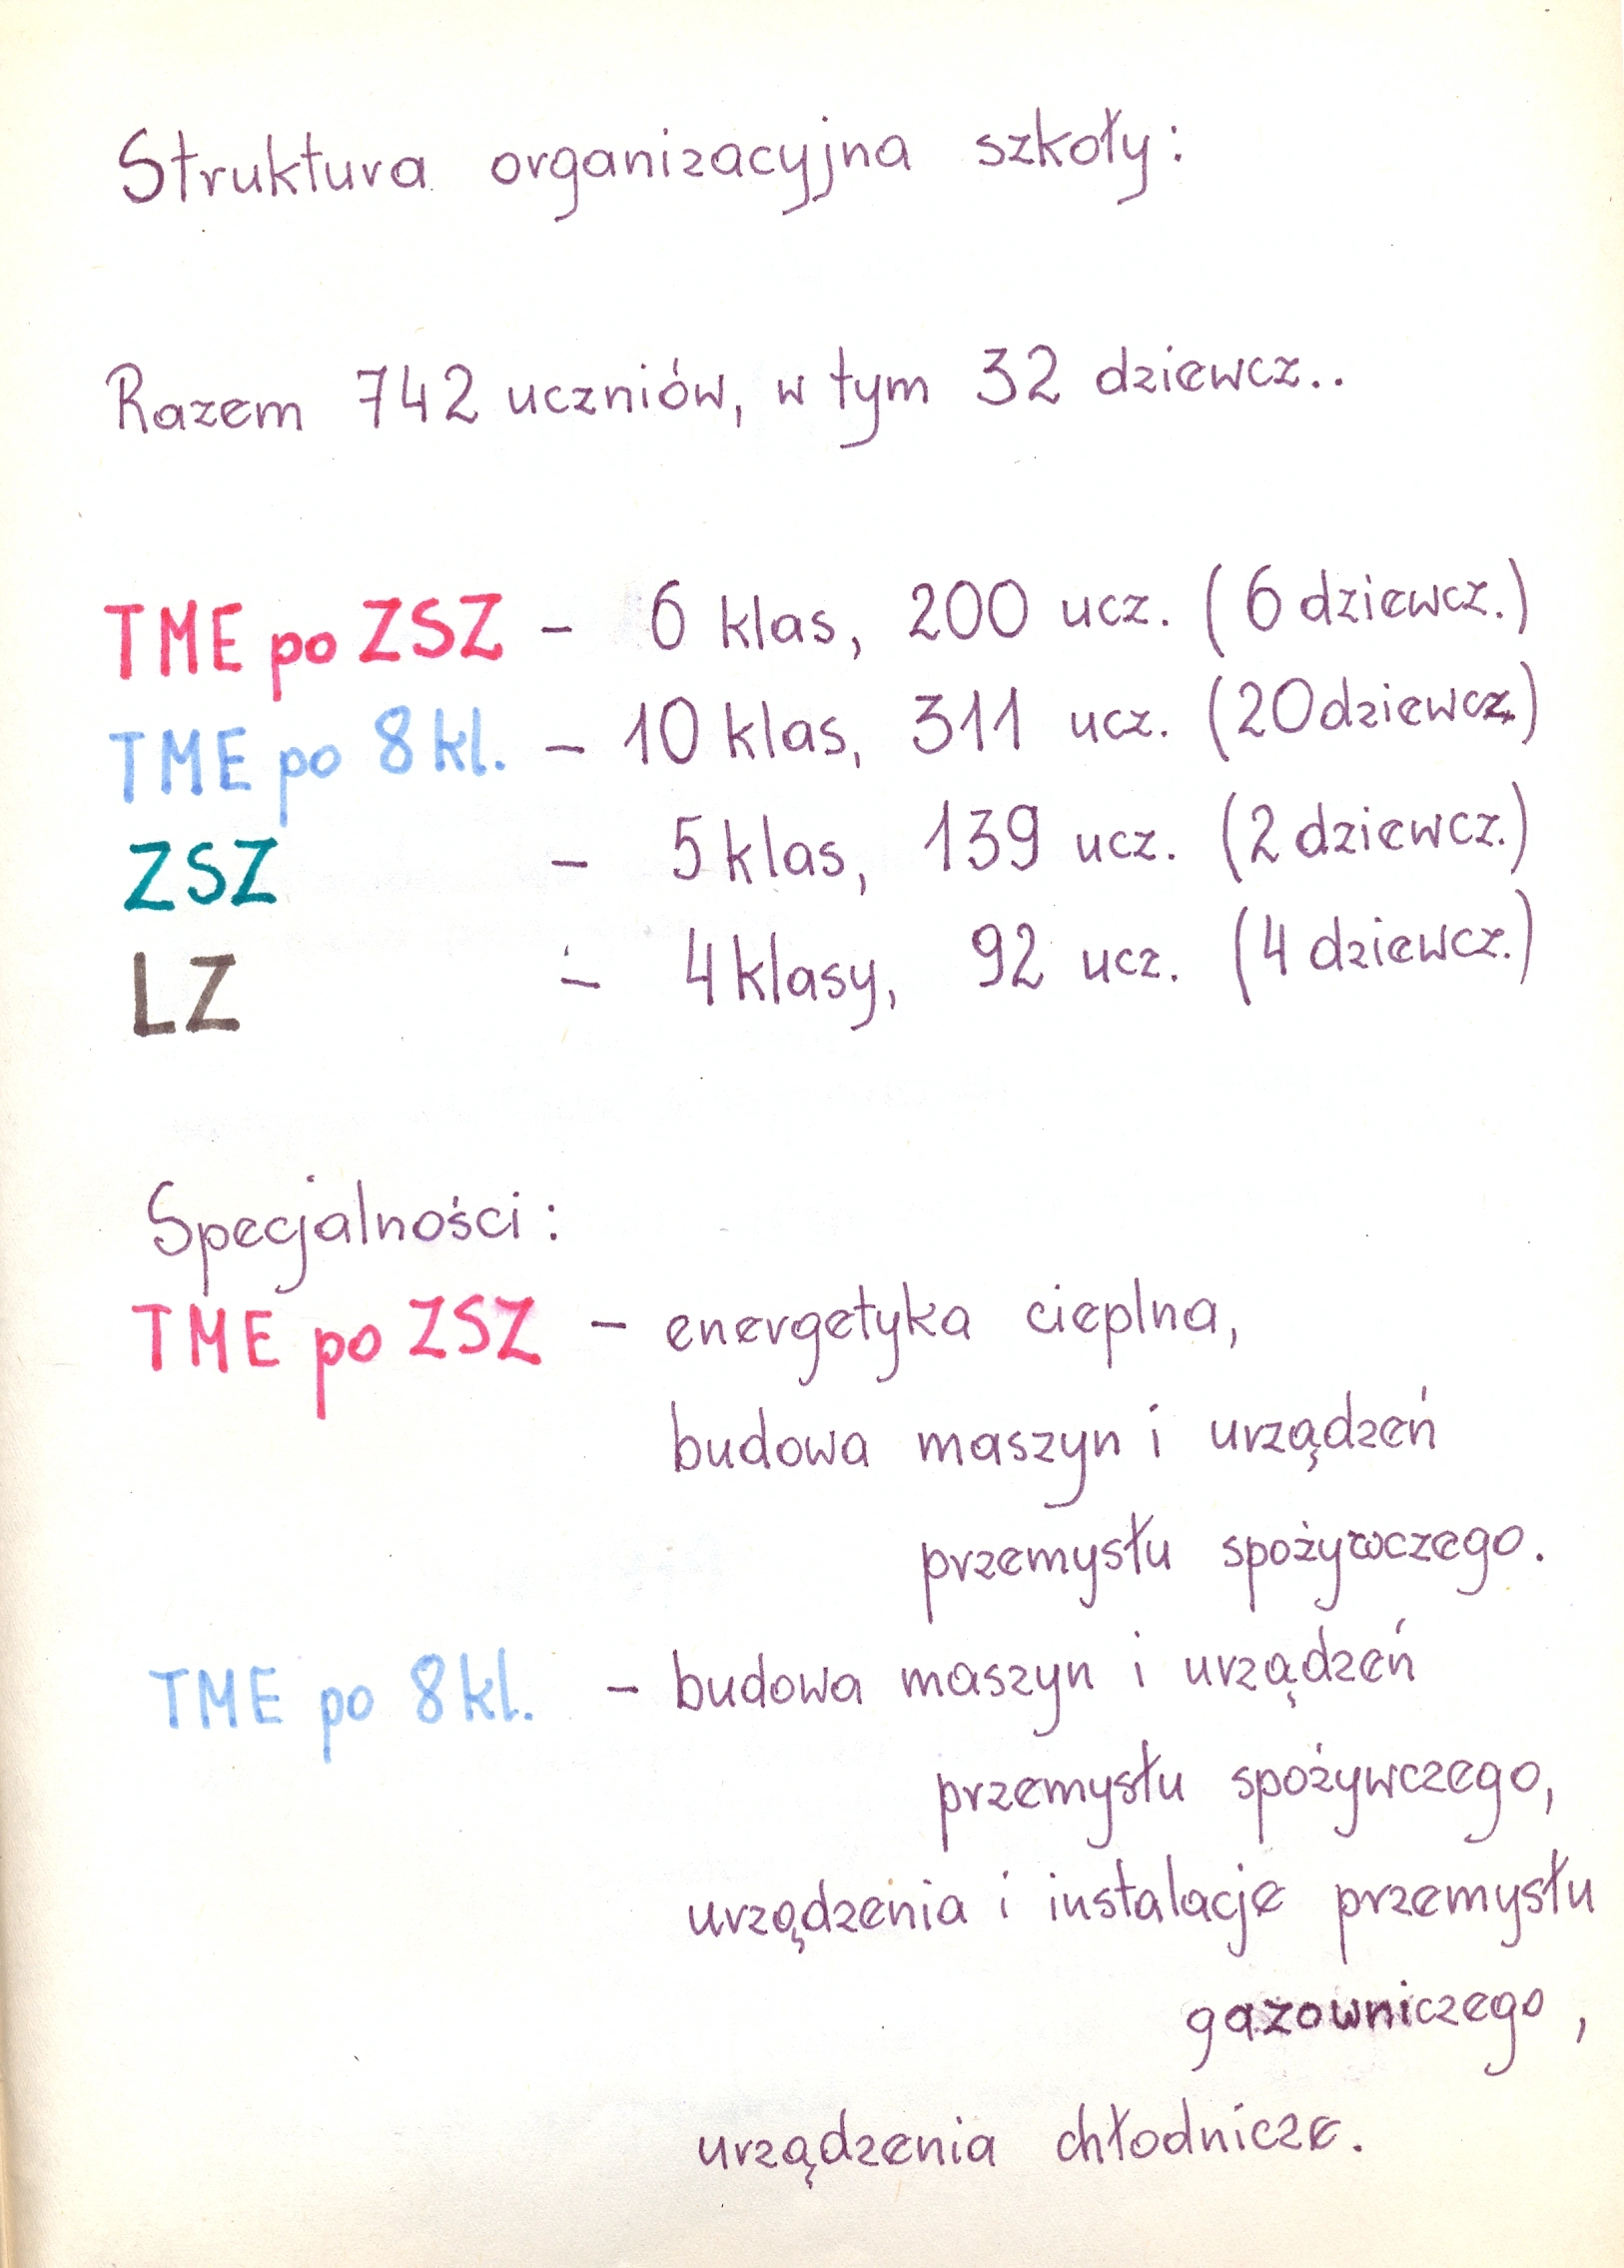 Struktura organizacyjna szkoły:
Razem 742 uczniów, w tym 32 dziewcz..
TME po ZSZ - 6 klas, 200 ucz. (6 dziewcz.)
TME po 8 kl. - 10 klas, 311 ucz. (20 dziewcz.)
ZSZ - 5 klas, 139 ucz. (2 dziewcz.)
LZ - 4 klasy, 92 ucz. (4 dziewcz.)
Specjalności:
TME po ZSZ - energetyka cieplna,
budowa maszyn i urządzeń
przemysłu spożywczego.
TME po 8 kl. - budowa maszyn i urządzeń
przemysłu spożywczego,
urządzenia i instalacje przemysłu
gazowniczego,
urządzenia chłodnicze.